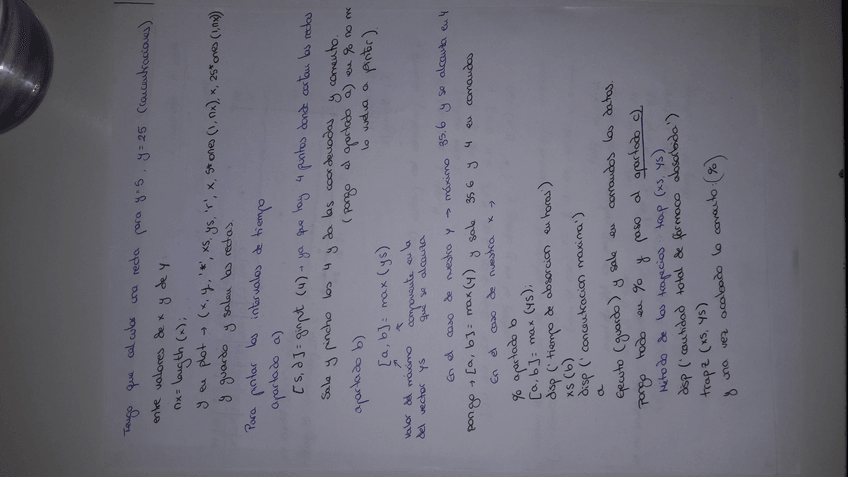 Tengo que calcular una recta para y=5, y=25 (concentraciones)
entre valores de x y de y
nx=length(x);
y en plot → (x,y,'*', xs, ys, 'r', x, 5*ones(1,nx), x, 25*ones(1,nx))
y guardo y salen las rectas.
Para pintar los intervalos de tiempo
apartado a)
[s,d]=ginput(4) → ya que hay 4 puntos donde cortan las rectas
Sale y pincho los 4 y da las coordenadas y comento.
(pongo el apartado a) en % no me
lo vuelva a pintar)
apartado b)
[a,b]=max(ys)
valor del máximo componente en la
del vector ys que se alcanza
En el caso de nuestra y → máximo 35.6 y se alcanza en 4
pongo → [a,b]=max(y) y sale 35.6 y 4 en comandos
En el caso de nuestra x →
% apartado b
[a,b]=max(ys);
disp('tiempo de absorcion en horas')
xs(b)
disp('concentracion maxima')
a
Ejecuto (guardo) y sale en comandos los datos.
Pongo todo en % y paso al apartado c)
Metodo de los trapecios trap(xs,ys)
disp('cantidad total de farmaco absorbida')
trapz(xs,ys)
y una vez acabado lo comento (%)